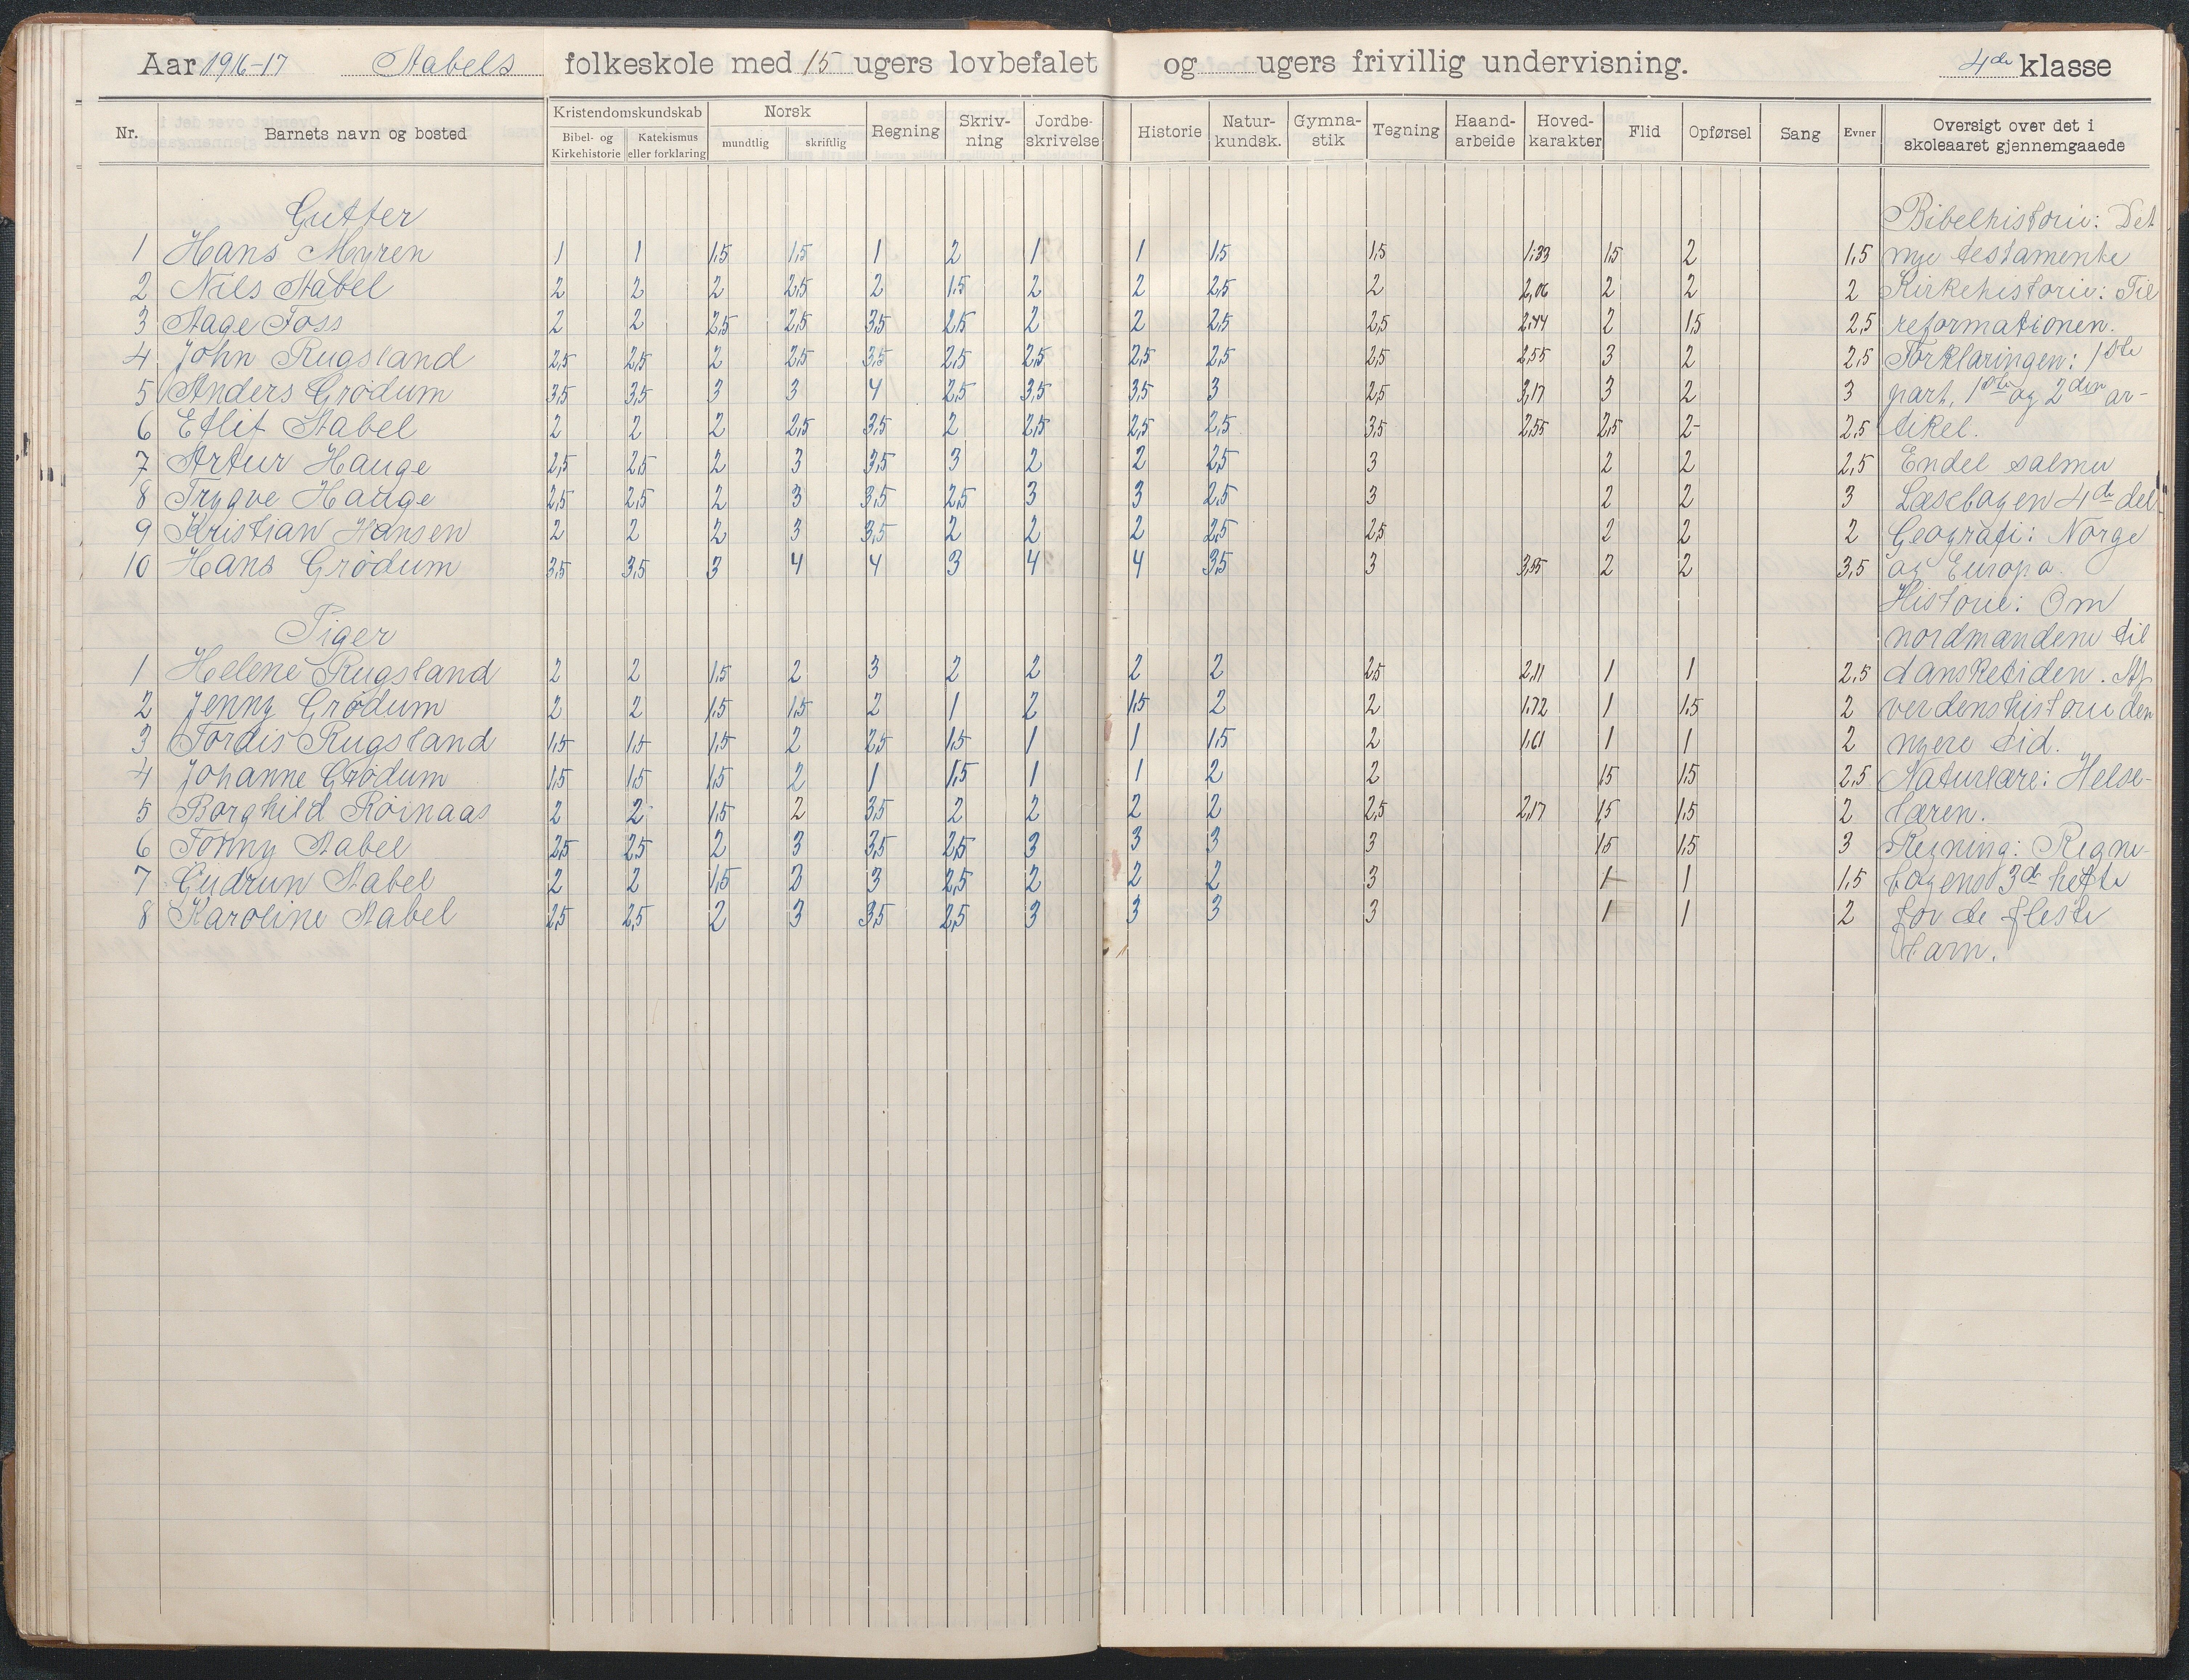 Aar 1916-17 Stabels folkeskole med 15 ugers lovbefalet og ugers frivillig undervisning. 4de klasse
Nr. Barnets navn og bosted Kristendomskundskab Bibel- og Kirkehistorie Katekismus eller forklaring Norsk mundtlig skriftlig Regning Skriv-ning Jordbe-skrivelse Historie Natur-kundsk. Gymna-stik Tegning Haand-arbeide Hoved-karakter Flid Opførsel Sang Evner Oversigt over det i skoleaaret gjennemgaaede
Gutter Bibelhistorie: Det
1 Hans Myren 1 1 1,5 1,5 1 2 1 1 1,5 1,5 1,33 1,5 2 1,5 nye testamente
2 Nils Stabel 2 2 2 2,5 2 1,5 2 2 2,5 2 2,06 2 2 2 Kirkehistorie: Til
3 Aage Foss 2 2 2,5 2,5 3,5 2,5 2 2 2,5 2,5 2,44 2 1,5 2,5 reformationen.
4 John Rugsland 2,5 2,5 2 2,5 3,5 2,5 2,5 2,5 2,5 2,5 2,55 3 2 2,5 Forklaringen: 1ste
5 Anders Grødum 3,5 3,5 3 3 4 2,5 3,5 3,5 3 2,5 3,17 3 2 3 part, 1ste og 2den ar-
6 Etlif Stabel 2 2 2 2,5 3,5 2 2,5 2,5 2,5 3,5 2,55 2,5 2- 2,5 tikel.
7 Artur Hauge 2,5 2,5 2 3 3,5 3 2 2 2,5 3 2 2 2,5 Endel salmer
8 Trygve Hauge 2,5 2,5 2 3 3,5 2,5 3 3 2,5 3 2 2 3 Læsebogen 4de del
9 Kristian Hansen 2 2 2 3 3,5 2 2 2 2,5 2,5 2 2 2 Geografi: Norge
10 Hans Grødum 3,5 3,5 3 4 4 3 4 4 3,5 3 3,95 2 2 3,5 og Europa.
Historie: Om
Piger nordmændene til
1 Helene Rugsland 2 2 1,5 2 3 2 2 2 2 2,5 2,11 1 1 2,5 dansketiden. Af
2 Jenny Grødum 2 2 1,5 1,5 2 1 2 1,5 2 2 1,72 1 1,5 2 verdenshistorie den
3 Tordis Rugsland 1,5 1,5 1,5 2 2,5 1,5 1 1 1,5 2 1,61 1 1 2 nyere tid.
4 Johanne Grødum 1,5 1,5 1,5 2 1 1,5 1 1 2 2 1,5 1,5 2,5 Naturlære: Helse-
5 Borghild Røinaas 2 2 1,5 2 3,5 2 2 2 2 2,5 2,17 1,5 1,5 2 læren.
6 Tonny Stabel 2,5 2,5 2 3 3,5 2,5 3 3 3 3 1,5 1,5 3 Regning: Regne-
7 Gudrun Stabel 2 2 1,5 3 3 2,5 2 2 2 3 1 1 1,5 bogens 3de hefte
8 Karoline Stabel 2,5 2,5 2 3 3,5 2,5 3 3 3 3 1 1 2 for de fleste
barn.